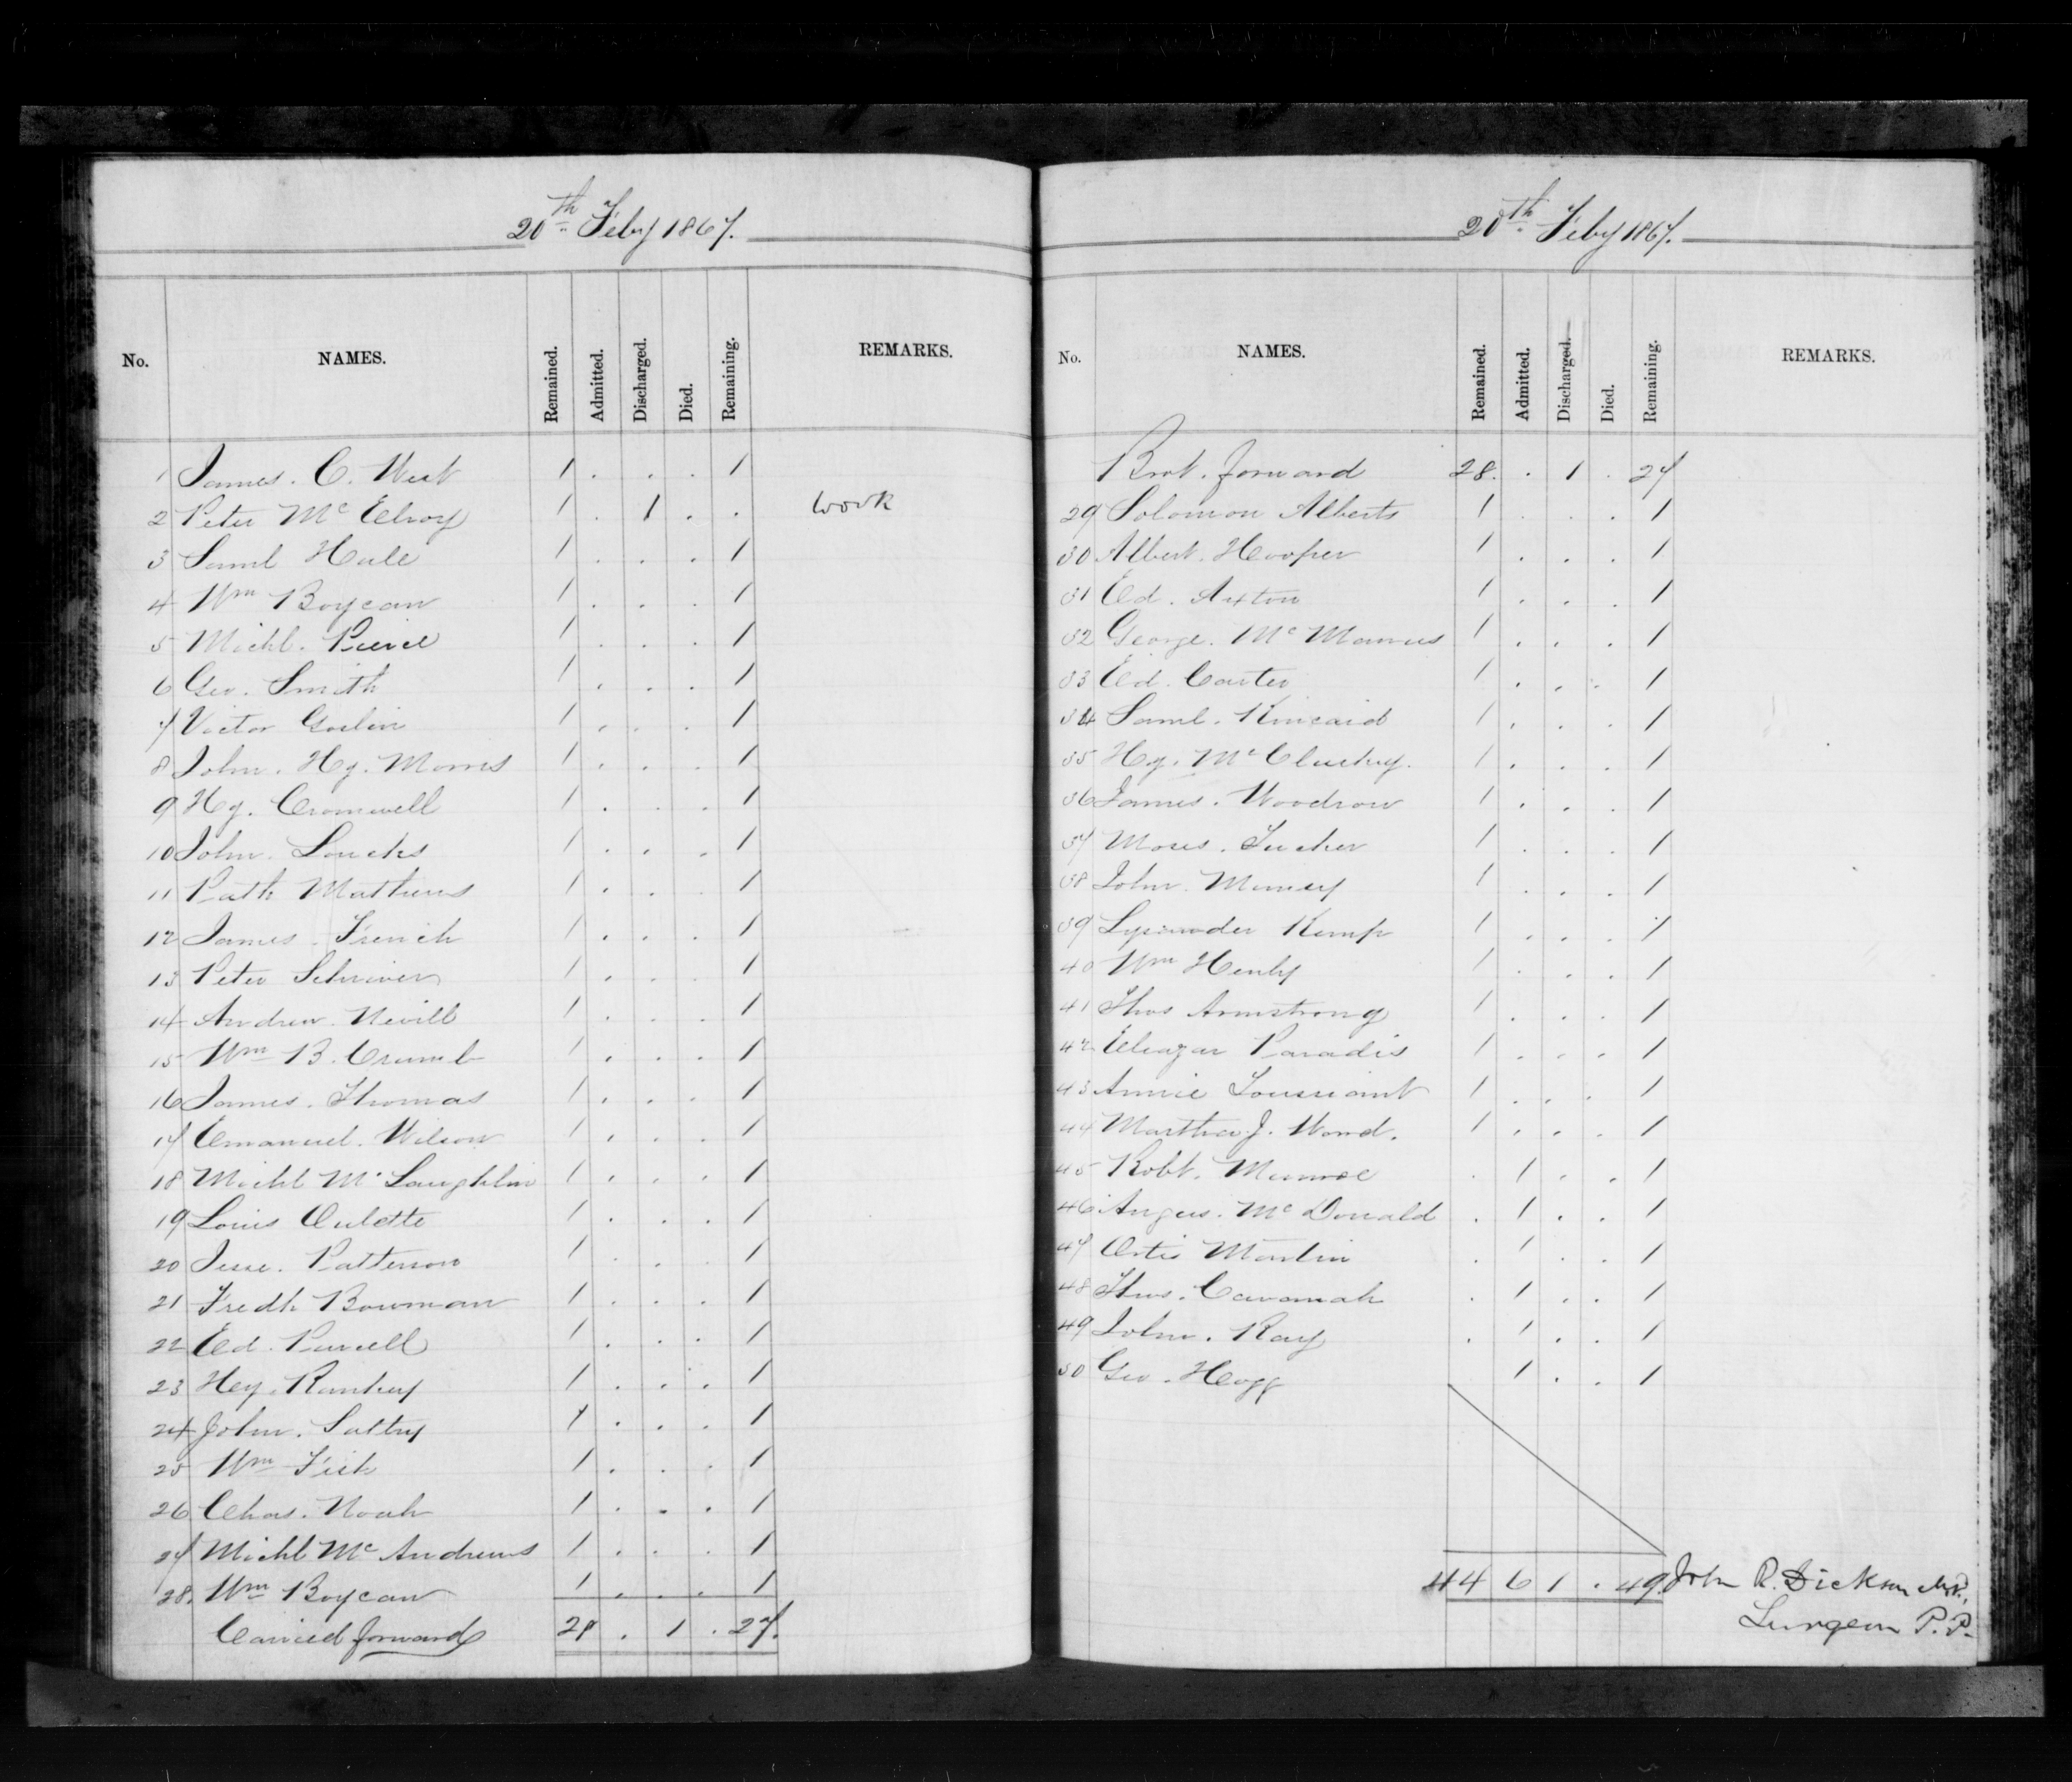 20th Feby 1867.
No. NAMES. Remained. Admitted. Discharged. Died. Remaining. REMARKS.
1 James. C. West 1 . . . 1
2 Peter Mc Elroy 1 . 1 . . work
3 Saml Hale 1 . . . 1
4 Wm Boycan 1 . . . 1
5 Michl. Pierce 1 . . . 1
6 Geo. Smith 1 . . . 1
7 Victor Goslin 1 . . . 1
8 John. Hy. Morris 1 . . . 1
9 Hy. Cromwell 1 . . . 1
10 John. Loucks 1 . . . 1
11 Patk Mathews 1 . . . 1
12 James. French 1 . . . 1
13 Peter Schriver 1 . . . 1
14 Andrew. Nevill 1 . . . 1
15 Wm B. Crumb 1 . . . 1
16 James. Thomas 1 . . . 1
17 Emanuel. Wilson 1 . . . 1
18 Michl Mc Laughlin 1 . . . 1
19 Louis Oulette 1 . . . 1
20 Jesse. Patterson 1 . . . 1
21 Fredk Bowman 1 . . . 1
22 Ed. Purcell 1 . . . 1
23 Hy. Rankey 1 . . . 1
24 John. Saltry 1 . . . 1
25 Wm Fish 1 . . . 1
26 Chas. Noah 1 . . . 1
27 Michl Mc Andrews 1 . . . 1
28. Wm Boycan 1 . . . 1
Carried forward 28 . 1 . 27.
20th Feby 1867.
No. NAMES. Remained. Admitted. Discharged. Died. Remaining. REMARKS.
Brot. forward 28 . 1 . 27
29 Solomon Alberts 1 . . . 1
30 Albert. Hooper 1 . . . 1
31 Ed. Axton 1 . . . 1
32 George. Mc Manus 1 . . . 1
33 Ed. Carter 1 . . . 1
34 Saml. Kincaid 1 . . . 1
35 Hy. Mc Cluskey. 1 . . . 1
36 James. Woodrow 1 . . . 1
37 Moses. Tucker 1 . . . 1
38 John. Mumey 1 . . . 1
39 Lysander Kemp 1 . . . 1
40 Wm Henly 1 . . . 1
41 Thos Armstrong 1 . . . 1
42 Eleazar Paradis 1 . . . 1
43 Annie Toussiant 1 . . . 1
44 Martha J. Wood. 1 . . . 1
45 Robt. Munroe . 1 . . 1
46 Angus. Mc Donald . 1 . . 1
47 Ortis Martin . 1 . . 1
48 Thos. Cavanah . 1 . . 1
49 John. Ray . 1 . . 1
50 Geo. Hogg . 1 . . 1
44 6 1 . 49. John R. Dickson M.D.,
Surgeon P.P.